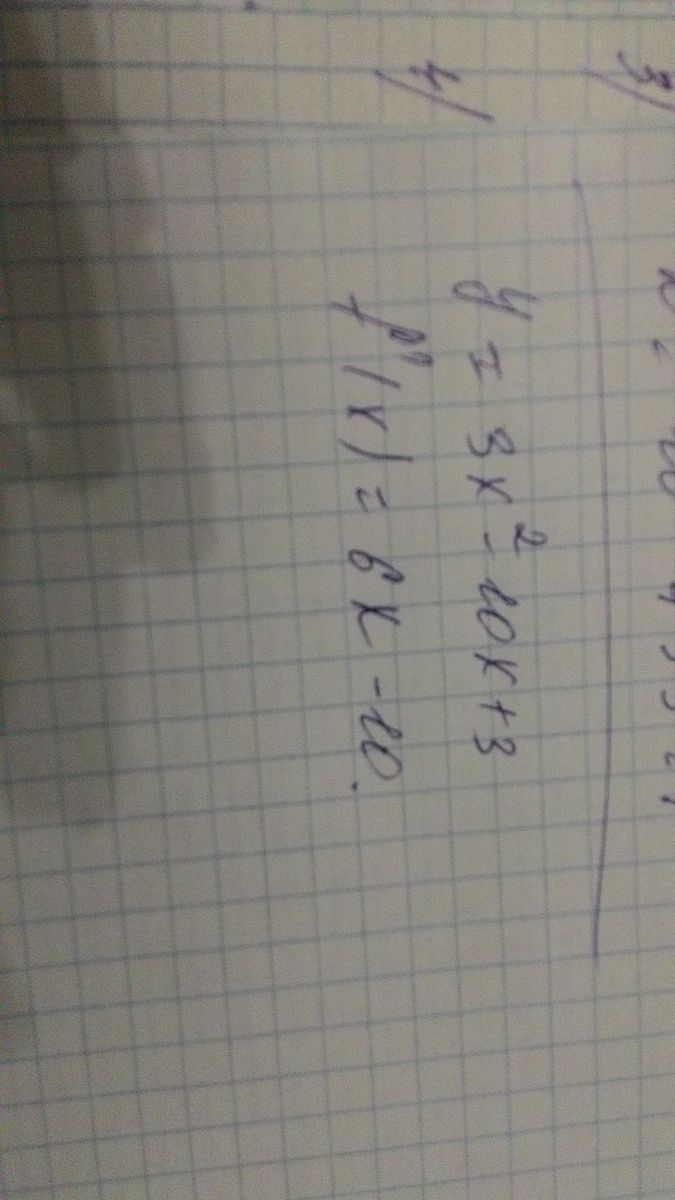 3)
4)
y = 3x² - 10x + 3
f'(x) = 6x - 10.